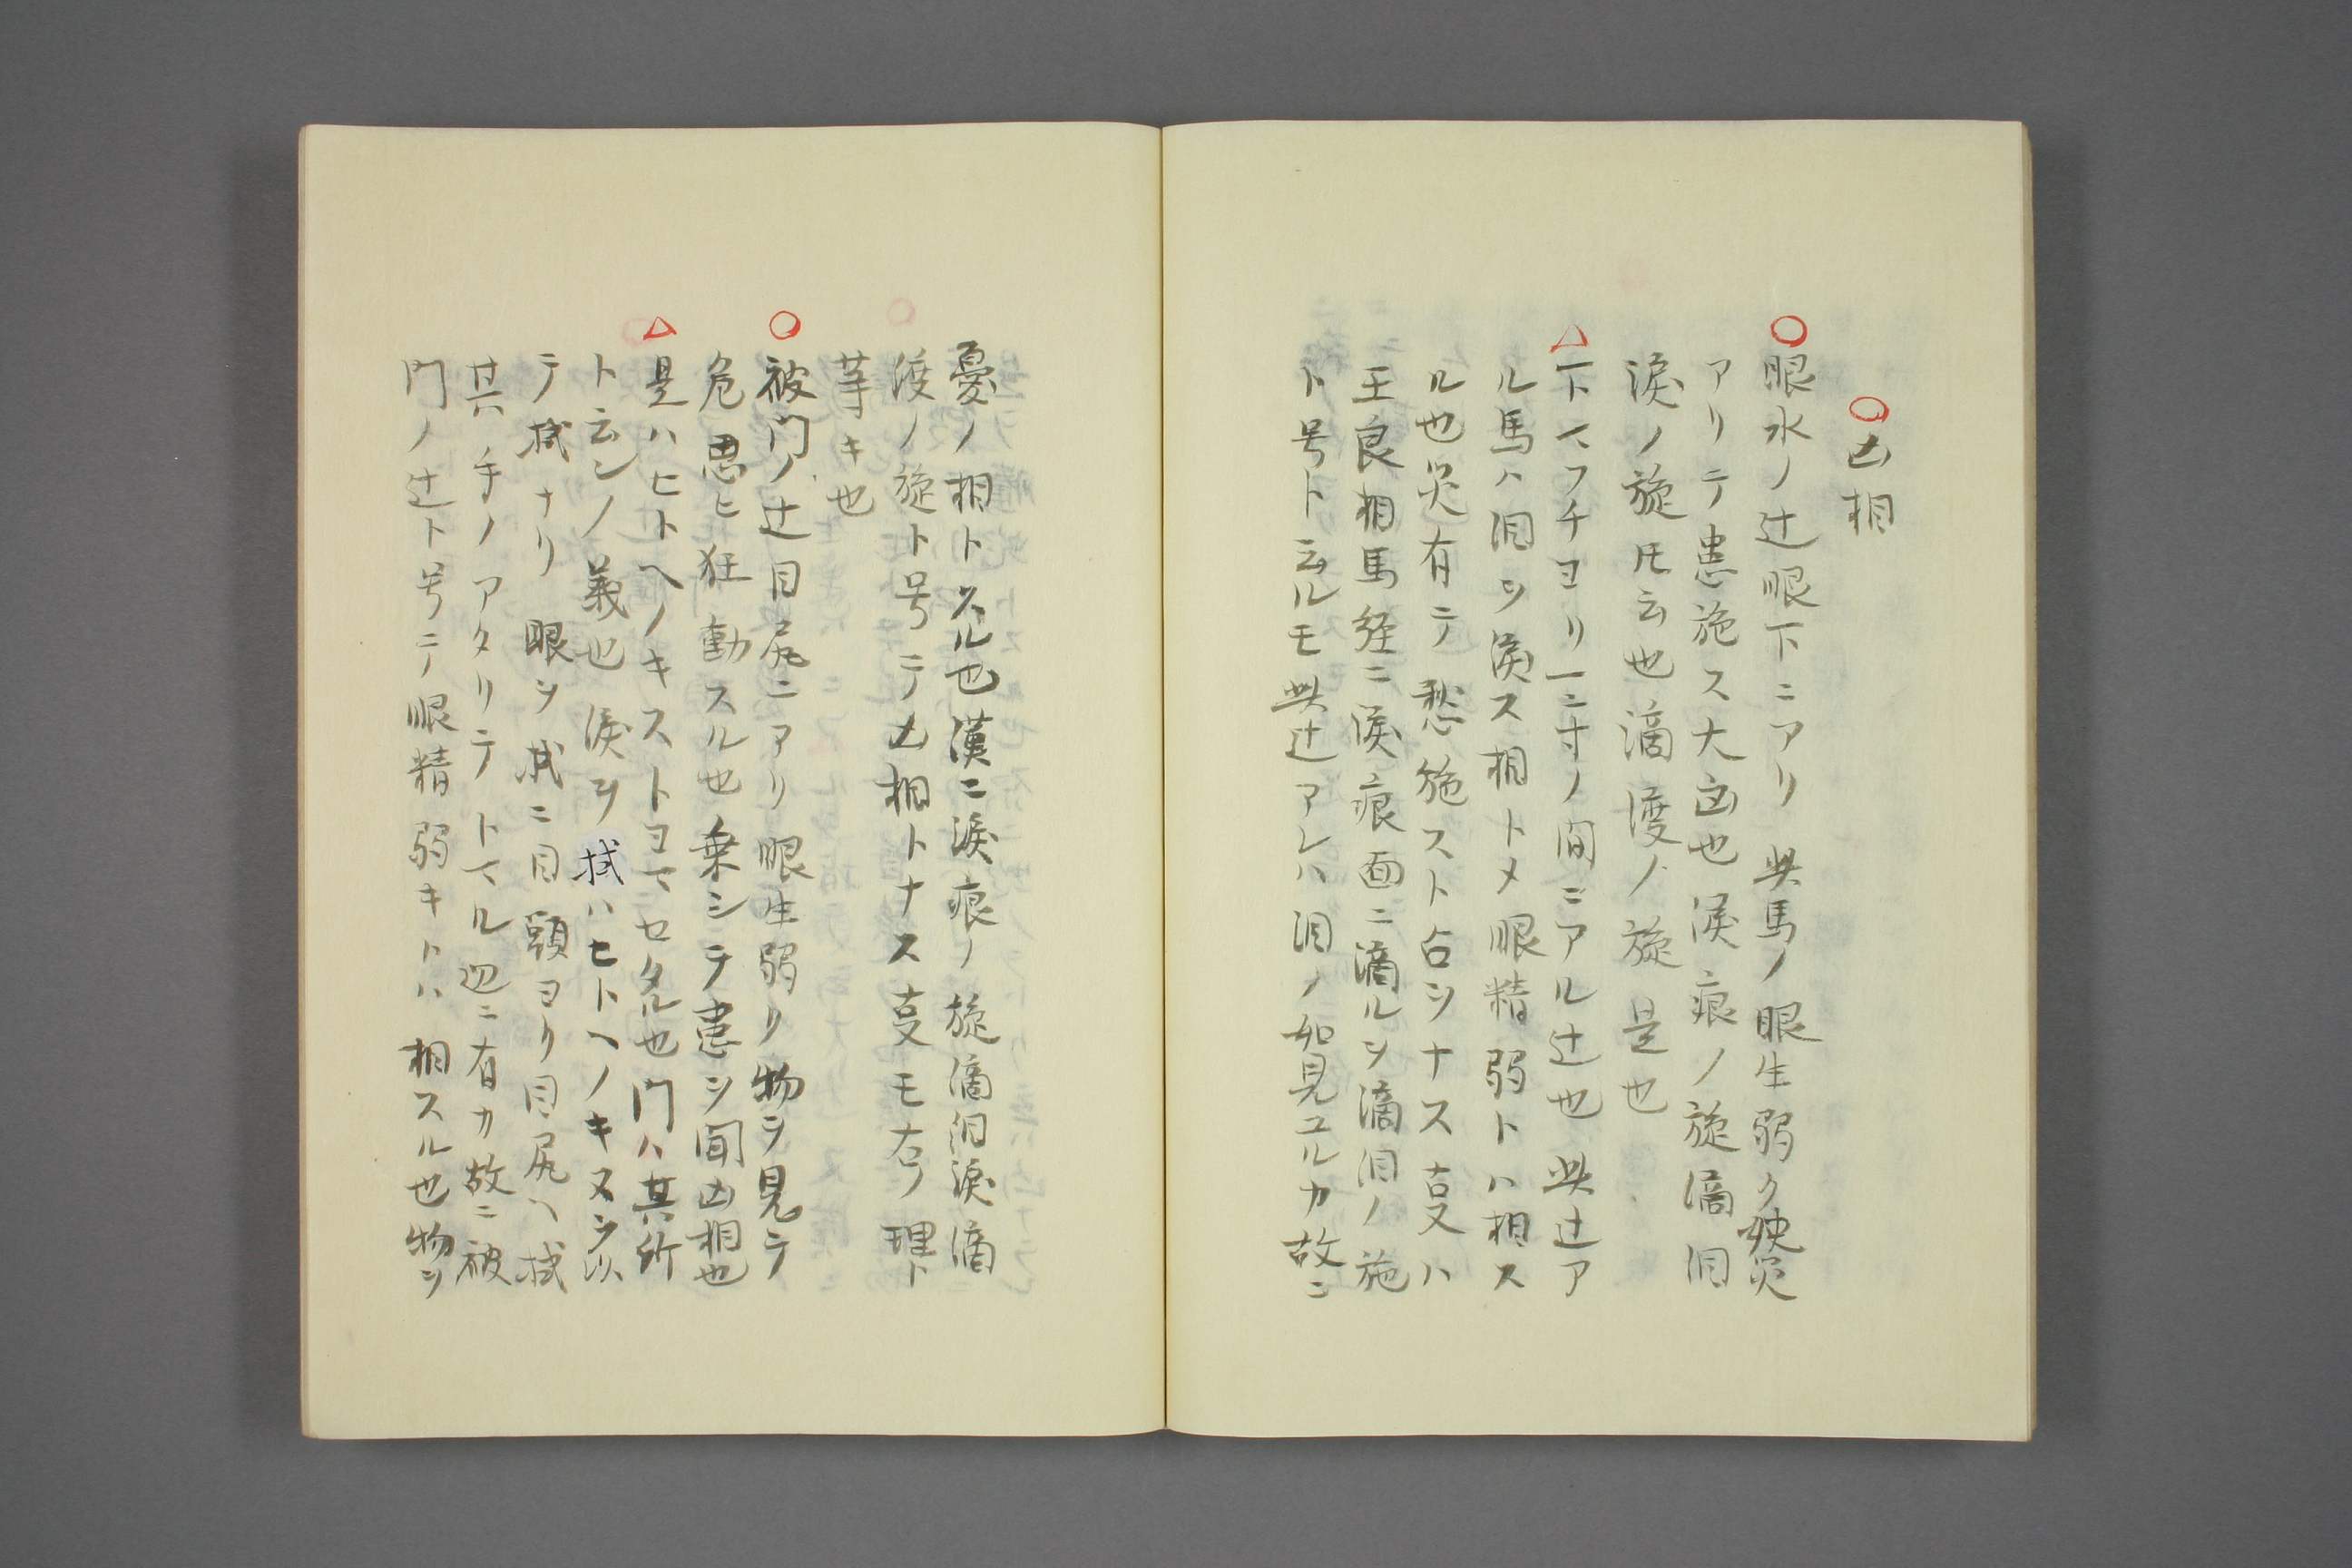 ○凶相
○眼水ノ辻眼下ニアリ此馬ノ眼生弱ク殃災
アリテ患施ス大凶也涙痕ノ旋滴泪
涙ノ旋圧云也滴渡ノ旋是也
△下マフチヨリ一二寸ノ間ニアル辻也此辻ア
ル馬ハ泪ヲ涙ス相トメ眼精弱トハ相ス
ル也災有テ愁施スト占ヲナス叓ハ
王良相馬経ニ涙痕面ニ滴ルヲ滴泪ノ施
ト号ト云ルモ此辻アレハ泪ノ如見ユルカ故ニ
憂ノ相トスル也漢ニ涙痕ノ旋滴泪涙滴
渡ノ旋ト号テ凶相トナス叓モ右ノ理ト
等キ也
○被門ノ辻目尻ニアリ眼生弱リ物ヲ見テ
危思ヒ狂動スル也乗シテ患ヲ聞凶相也
△是ハヒトヘノキストヨマセタル也門ハ其所
ト云ンノ義也涙ヲ拭ハヒトヘノキヌヲ以
テ拭ナリ眼ヲ拭ニ目頭ヨリ目尻ヘ拭
其手ノアタリテトマル辺ニ有カ故ニ被
門ノ辻ト号テ眼精弱キトハ相スル也物ヲ